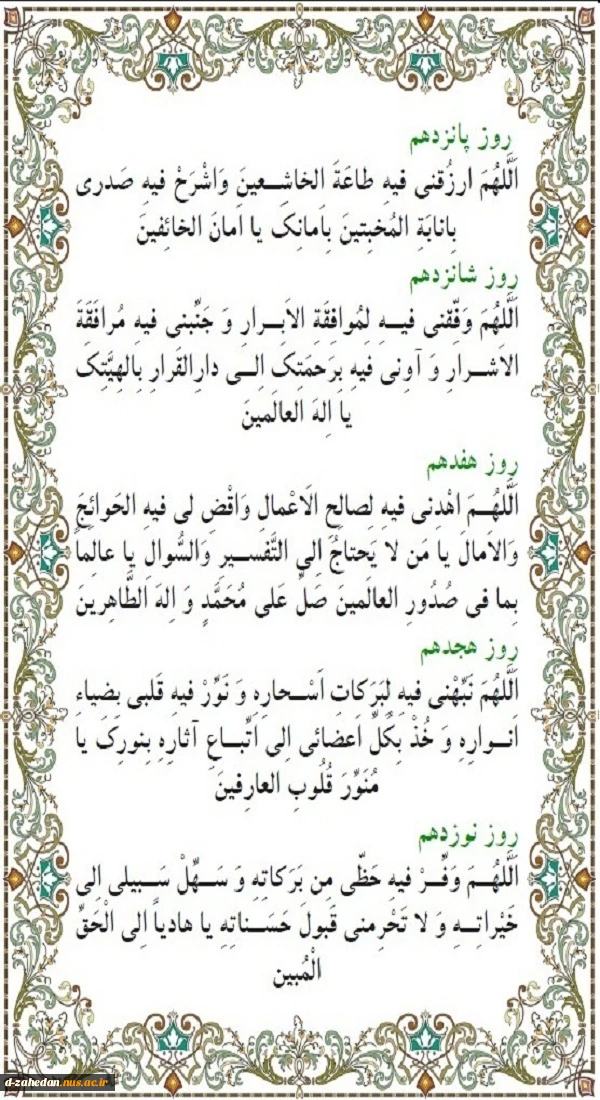 روز پانزدهم
اَللَّهُمَ ارزُقنی فیهِ طاعَةَ الخاشِعینَ وَاشْرَحْ فیهِ صَدری
بِانابَةِ المُخبِتینَ بِاَمانِکَ یا اَمانَ الخائِفینَ
روز شانزدهم
اَللَّهُمَ وَفِّقنی فیهِ لِمُوافِقَةِ الاَبرارِ وَ جَنِّبنی فیهِ مُرافَقَةَ
الاَشرارِ وَ آوِنی فیهِ بِرَحمَتِکَ اِلی دارِالقَرارِ بِالهِیَّتِکَ
یا اِلهَ العالَمینَ
روز هفدهم
اَللَّهُمَ اهْدِنی فیهِ لِصالِحِ الَاعْمالِ وَاقْضِ لی فیهِ الحَوائِجَ
وَالامالَ یا مَن لا یَحتاجُ اِلی التَّفسیرِ وَالسُّوالِ یا عالِماً
بِما فی صُدُورِ العالَمینَ صَلِّ عَلی مُحَمَّدٍ وَ اِلهَ الطَّاهِرینَ
روز هجدهم
اَللَّهُمَ نَبِّهْنی فیهِ لِبَرَکاتِ اَسْحارِهِ وَ نَوِّرْ فیهِ قَلبی بِضیاءِ
اَنوارِهِ وَ خُذْ بِکُلِّ اَعضائی اِلی اتِّباعِ آثارِهِ بِنورِکَ یا
مُنَوِّرَ قُلُوبِ العارِفینَ
روز نوزدهم
اَللَّهُمَ وَفِّرْ فیهِ حَظّی مِن بَرَکاتِهِ وَ سَهِّلْ سَبیلی اِلی
خَیْراتِهِ وَ لا تَحْرِمنی قَبولَ حَسَناتِهِ یا هادیاً اِلی الْحَقِّ
الْمُبین
d-zahedan.nus.ac.ir